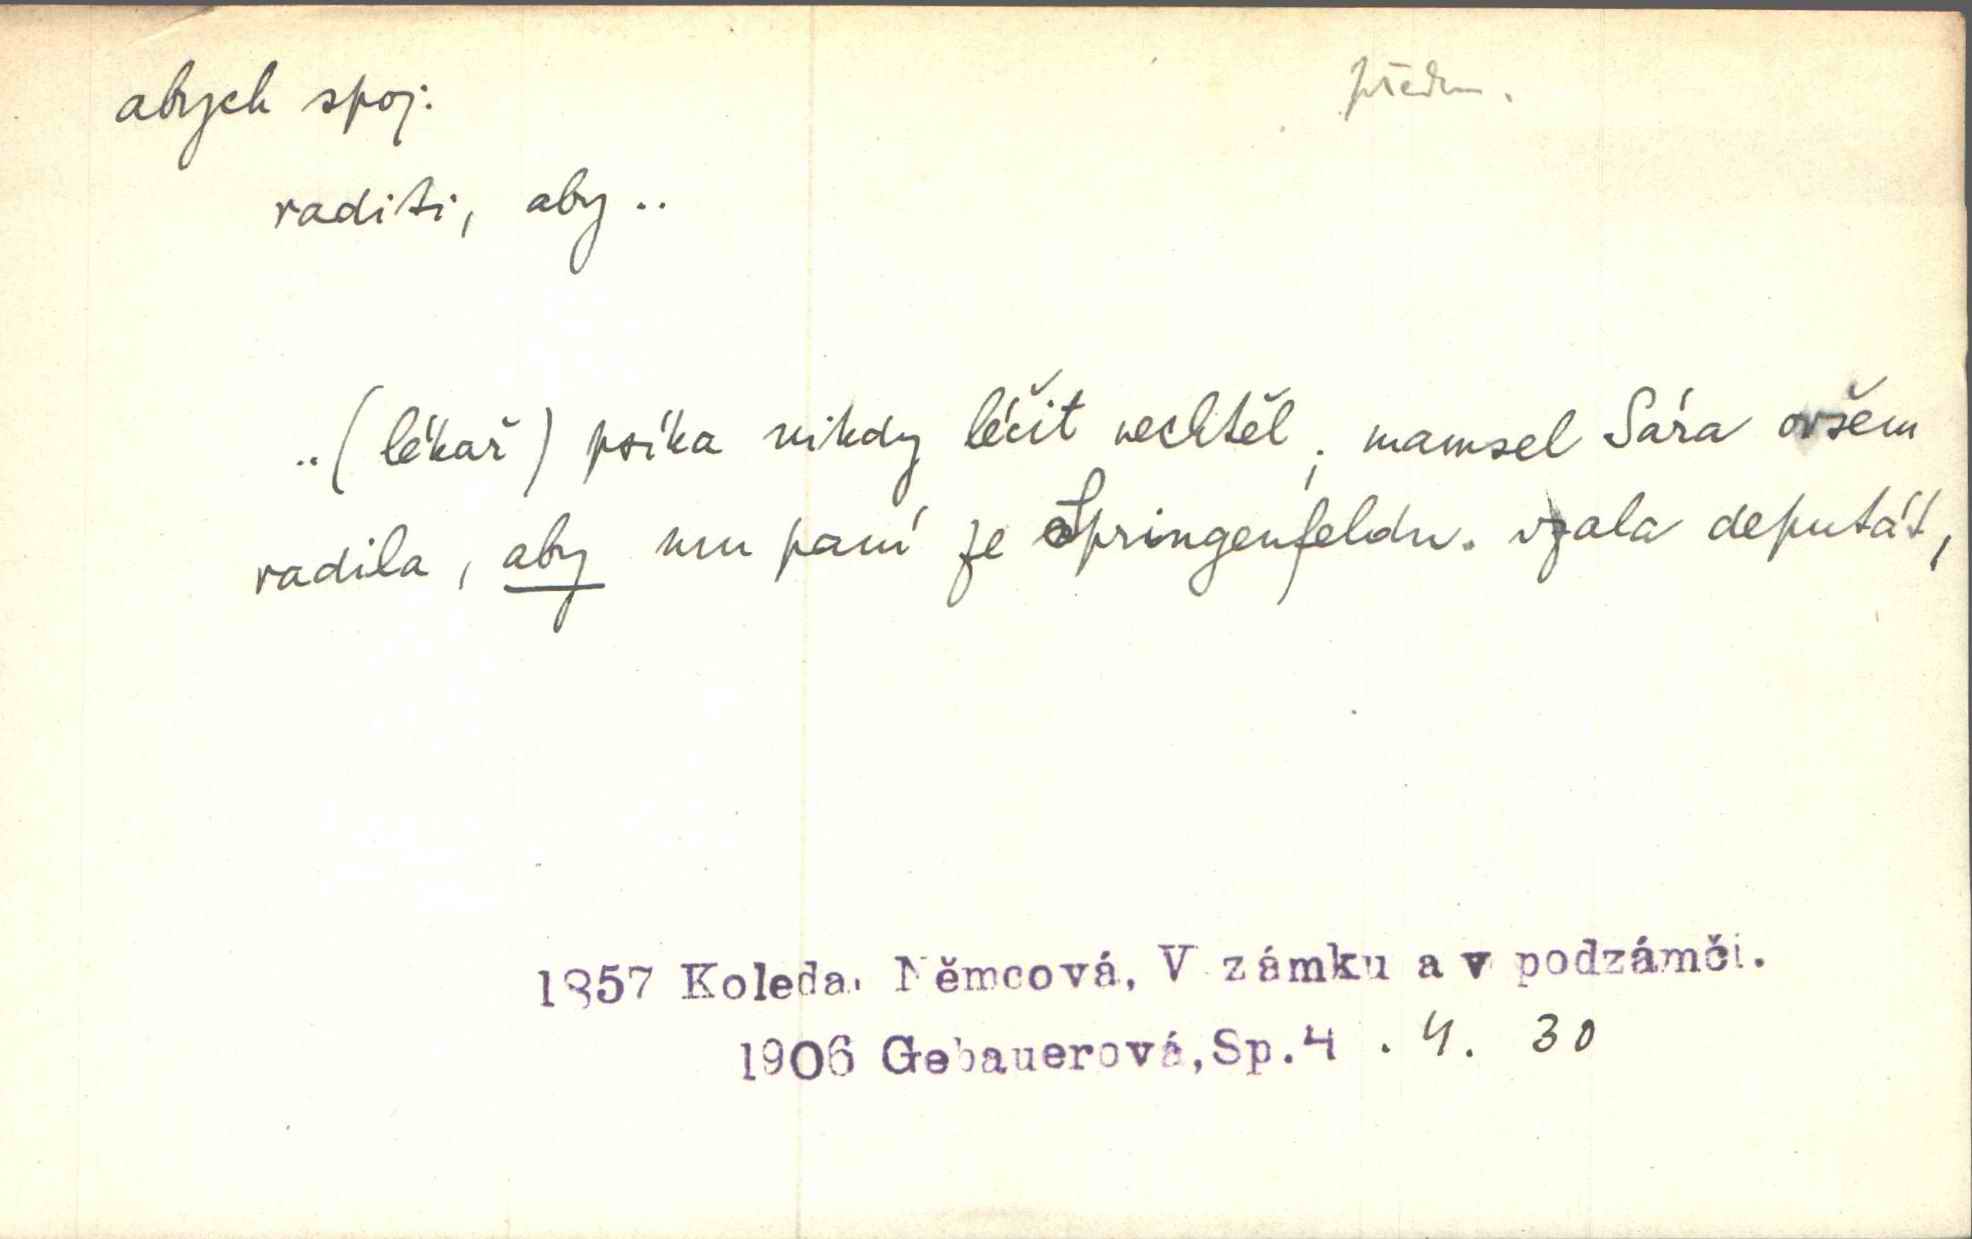 abych spoj. předm.
raditi, aby ..
.. (lékař) psíka nikdy léčit nechtěl; mamsel Sára ovšem
radila, aby mu paní ze Springenfeldu. vzala deputát,
1857 Koleda. Němcová, V zámku a v podzámčí.
1906 Gebauerová, Sp. 4 . 4. 30